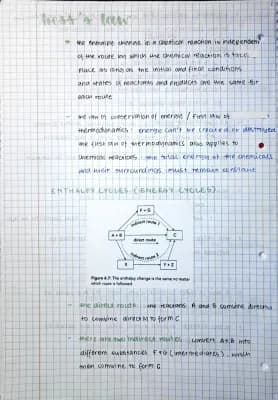 hess's law
- the enthalpy change in a chemical reaction is independent
of the route by which the chemical reaction is take
place as long as the initial and final conditions
and states of reactants and products are the same for
each route
- the law of conservation of energy / first law of
thermodynamics: energy can't be created or destroyed
the first law of thermodynamics also applies to
chemical reactions: the total energy of the chemicals
and their surroundings must remain constant
ENTHALPY CYCLES (ENERGY CYCLES)
F + G
indirect route 1
A + B
C
direct route
indirect route 2
X
Y + Z
Figure 6.7: The enthalpy change is the same no matter
which route is followed
- the direct route: the reactants A and B combine directly
to combine directly to form C
- there are two indirect routes: convert A+B into
different substances F+G (intermediates), which
then combine to form C